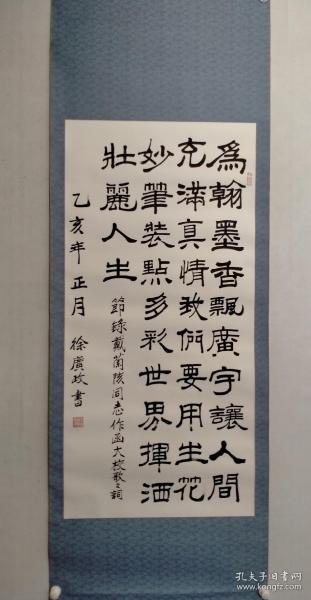 為翰墨香飄廣宇讓人間
充滿真情我們要用生花
妙筆裝點多彩世界揮洒
壯麗人生
節錄戴蘭陔同志作函大校歌之詞
乙亥年正月 徐廣政書
孔夫子旧书网